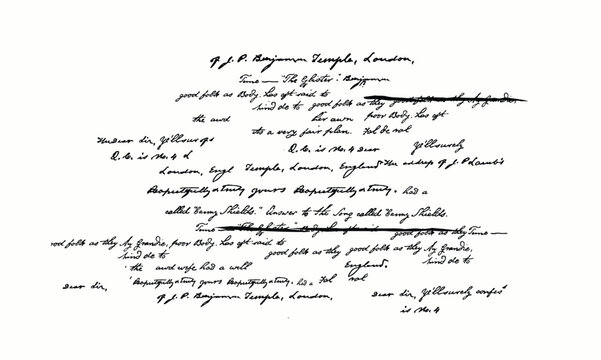 of J. P. Benjamin Temple, London,
Tune — "The Glister". Benjamin
good folk as Body. has oft said to
sind de to good folk as they
the awd her awn poor Body. has oft
Its a very fair plan. Fol de rol
Dear Sir, Ye'll sure
Q. C. is No. 4 Q. C. is No. 4 Dear Ye'll surely
London, Engl Temple, London, England Her address of J. P.
Respectfully & truly yours Respectfully & truly. had a
called "Jenny Shields." Answer to the Song called "Jenny Shields.
Tune good folk as they Tune —
good folk as they My Grandie, poor Body. has oft said to
good folk as they good folk as they My Grandie,
sind de to sind de to
the awd wife had a well England,
Respectfully & truly yours Respectfully & truly. had a Fol rol
Dear Sir,
of J. P. Benjamin Temple, London, Dear Sir, Ye'll surely confess
is No. 4